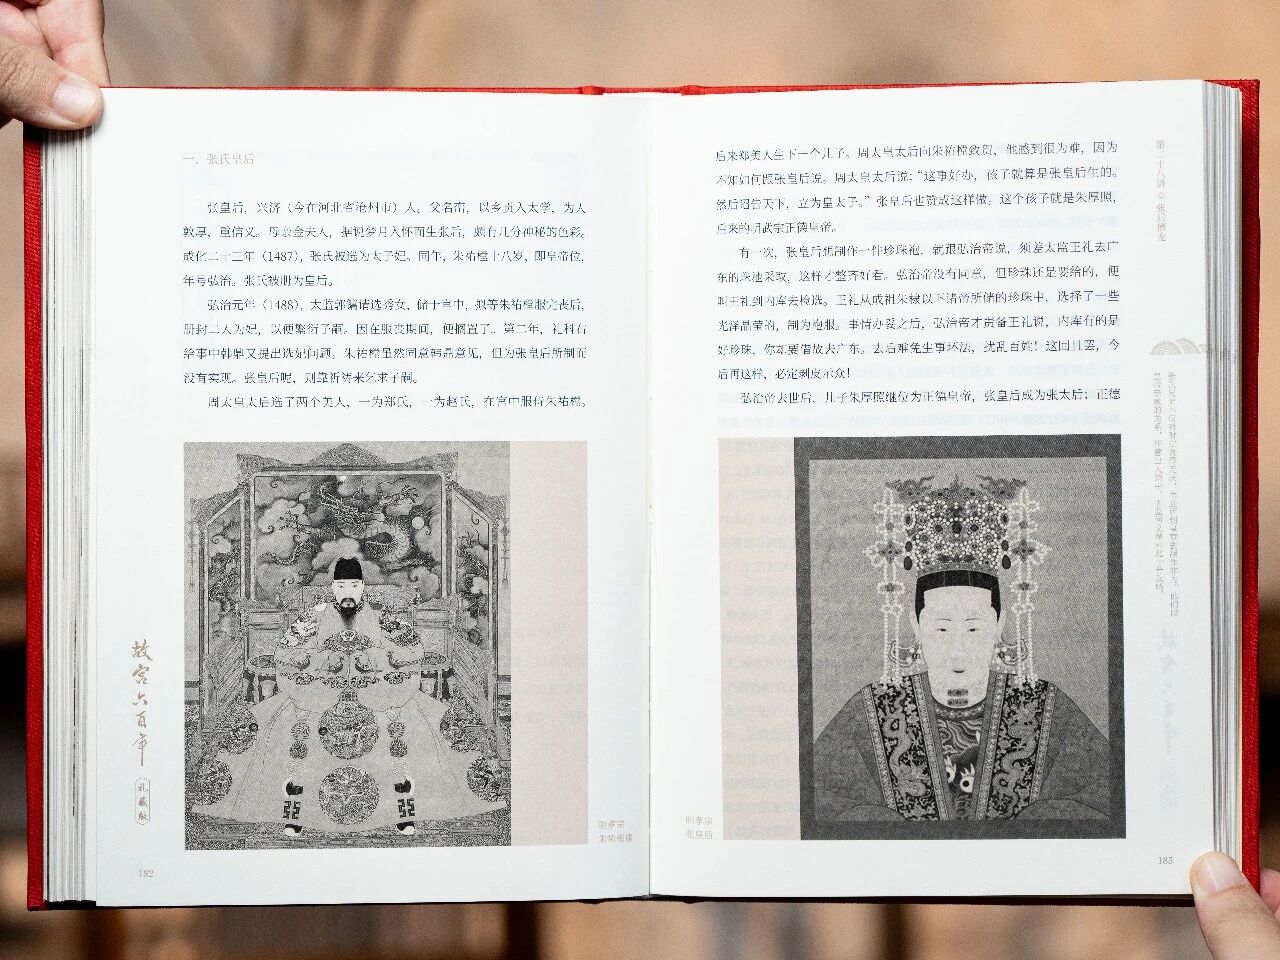 一、张氏皇后
张皇后，兴济（今在河北省沧州市）人。父名峦，以乡贡入太学，为人
敦厚，重信义。母亲金夫人，据说梦月入怀而生张后，颇有几分神秘的色彩。
成化二十三年（1487），张氏被选为太子妃。同年，朱祐樘十八岁，即皇帝位，
年号弘治。张氏被册为皇后。
弘治元年（1488），太监郭镛请选秀女，储于宫中，拟等朱祐樘服完丧后，
册封二人为妃，以便繁衍子嗣。因在服丧期间，便搁置了。第二年，礼科右
给事中韩鼎又提出选妃问题。朱祐樘虽然同意韩鼎意见，但为张皇后所制而
没有实现。张皇后呢，则靠祈祷来乞求子嗣。
周太皇太后选了两个美人，一为郑氏，一为赵氏，在宫中服侍朱祐樘。
明孝宗
朱祐樘像
故宫六百年
礼藏版
182
后来郑美人生下一个儿子。周太皇太后向朱祐樘致贺，他感到很为难，因为
不知如何跟张皇后说。周太皇太后说：“这事好办，孩子就算是张皇后生的。
然后诏告天下，立为皇太子。”张皇后也赞成这样做。这个孩子就是朱厚照，
后来的明武宗正德皇帝。
有一次，张皇后想制作一件珍珠袍，就跟弘治帝说，须差太监王礼去广
东的珠池采取，这样才整齐好看。弘治帝没有同意，但珍珠还是要给的，便
叫王礼到内库去检选。王礼从成祖朱棣以下诸帝所储的珍珠中，选择了一些
光泽晶莹的，制为袍服。事情办妥之后，弘治帝才责备王礼说，内库有的是
好珍珠，你却要借故去广东。去后难免生事坏法，扰乱百姓！这回且罢，今
后再这样，必定剥皮示众！
弘治帝去世后，儿子朱厚照继位为正德皇帝，张皇后成为张太后；正德
明孝宗
张皇后
第二十八讲
183